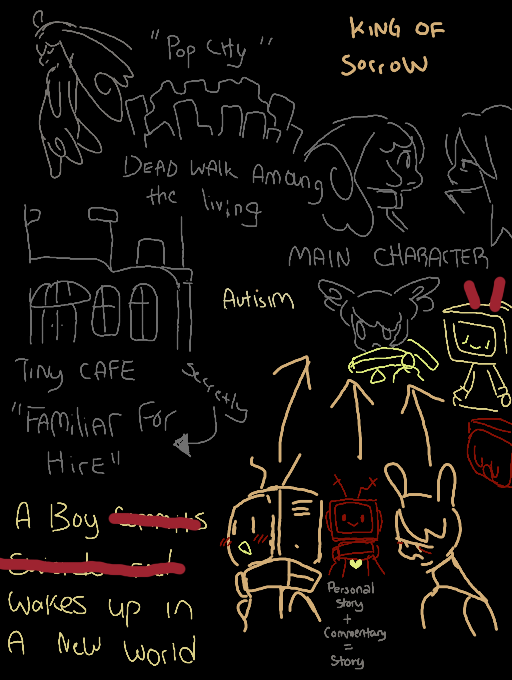 KING OF
SORROW
"POP CITY"
DEAD WALK AMONG
the living
MAIN CHARACTER
AUTISIM
TINY CAFE
Secretly
"FAMILIAR FOR
HIRE"
A BOY
WAKES UP IN
A NEW WORLD
Personal
Story
+
Commentary
=
Story